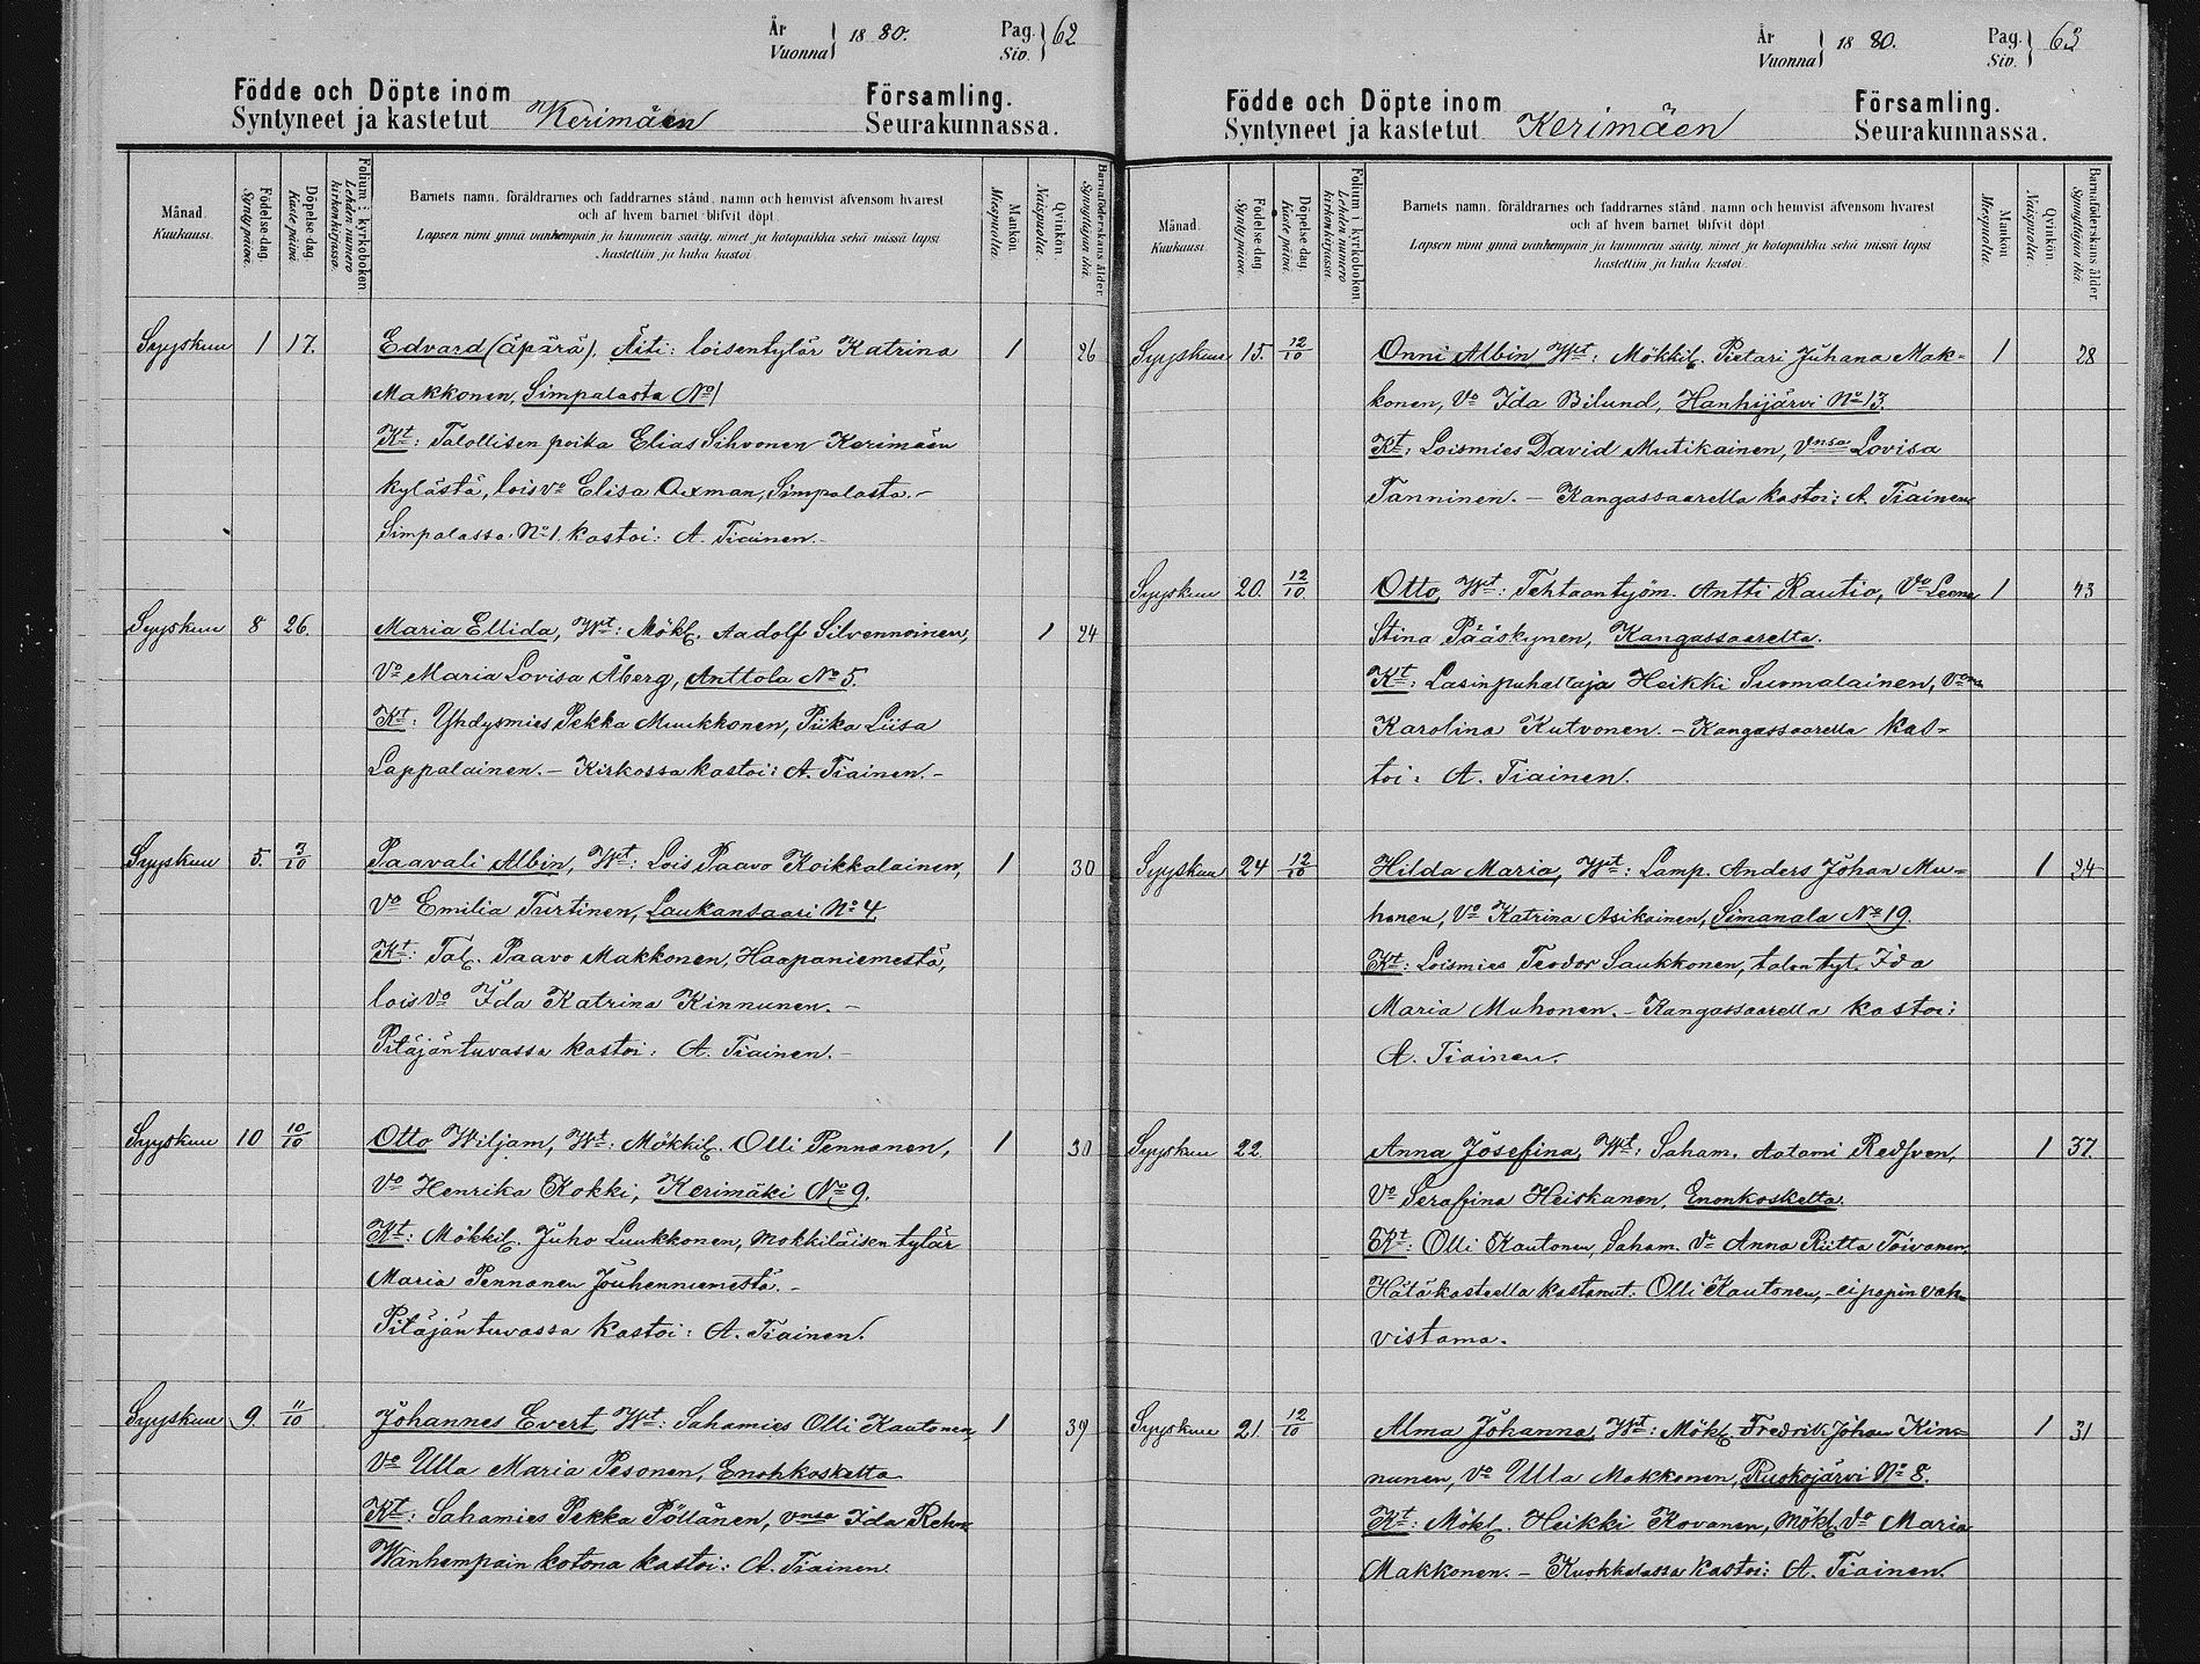 År
Vuonna } 1880. Pag.
Siv. } 62
Födde och Döpte inom
Syntyneet ja kastetut Kerimäen Församling.
Seurakunnassa.
Månad.
Kuukausi.
Födelse-dag.
Synty päivä.
Döpelse-dag.
Kaste päivä.
Folium i kyrkoboken.
Lehden numero kirkonkirjassa.
Barnets namn, föräldrarnes och faddrarnes stånd, namn och hemvist äfvensom hvarest
och af hvem barnet blifvit döpt.
Lapsen nimi ynnä vanhempain ja kummein sääty, nimet ja kotopaikka sekä missä lapsi
kastettiin ja kuka kastoi.
Mankön.
Miespuolia.
Qvinkön.
Naispuolia.
Barnaföderskans ålder.
Synnyttäjän ikä.
Syyskuu 1 17. Edvard (äpärä). Äiti: loisentytär Katrina 1 26
Makkonen, Simpalasta No 1
Kt: Talollisen poika Elias Sihvonen Kerimäen
kylästä, lois vo Elisa Axman, Simpalasta.-
Simpalassa No 1 kastoi: A. Tiainen.-
Syyskuu 8 26. Maria Ellida, Wt: Mökl. Aadolf Silvennoinen, 1 24
Vo Maria Lovisa Åberg, Anttola No 5.
Kt: Yhdysmies Pekka Muukkonen, Piika Liisa
Lappalainen. - Kirkossa kastoi: A. Tiainen.-
Syyskuu 5. 3/10 Paavali Albin, Wt: Lois Paavo Koikkalainen, 1 30
Vo Emilia Turtinen, Laukansaari No 4
Kt: Tal. Paavo Makkonen, Haapaniemestä,
lois Vo Ida Katrina Kinnunen. -
Pitäjäntuvassa kastoi: A. Tiainen.-
Syyskuu 10 10/10 Otto Wiljam, Wt: Mökkil. Olli Pennanen, 1 30
Vo Henrika Kokki, Kerimäki No 9.
Kt: Mökkil. Juho Luukkonen, mökkiläisen tytär
Maria Pennanen Jouhenniemestä.-
Pitäjäntuvassa kastoi: A. Tiainen.
Syyskuu 9. 11/10 Johannes Evert, Wt: Sahamies Olli Kautonen, 1 39
Vo Ulla Maria Pesonen, Enohkoskelta
Kt: Sahamies Pekka Pöllänen, vnsa Ida Rehn.
Wanhempain kotona kastoi: A. Tiainen.
År
Vuonna } 1880. Pag.
Siv. } 63
Födde och Döpte inom
Syntyneet ja kastetut Kerimäen Församling.
Seurakunnassa.
Månad.
Kuukausi.
Födelse-dag.
Synty päivä.
Döpelse-dag.
Kaste päivä.
Folium i kyrkoboken.
Lehden numero kirkonkirjassa.
Barnets namn, föräldrarnes och faddrarnes stånd, namn och hemvist äfvensom hvarest
och af hvem barnet blifvit döpt
Lapsen nimi ynnä vanhempain ja kummein sääty, nimet ja kotopaikka sekä missä lapsi
kastettiin ja kuka kastoi.
Mankön
Miespuolia.
Qvinkön
Naispuolia.
Barnaföderskans ålder.
Synnyttäjän ikä.
Syyskuu 15. 12/10 Onni Albin, Wt: Mökkil. Pietari Juhana Mak= 1 28
konen, Vo Ida Bilund, Hanhijärvi No 13.
Kt: Loismies David Mutikainen, Vnsa Lovisa
Tanninen. - Kangassaarella kastoi: A. Tiainen
Syyskuu 20. 12/10. Otto, Wt: Tehtaantyöm. Antti Rautio, Vo Leena 1 43
Stina Pääskynen, Kangassaarelta.
Kt: Lasinpuhaltaja Heikki Suomalainen, Vonsa
Karolina Kutvonen. - Kangassaarella kas=
toi: A. Tiainen.
Syyskuu 24 12/10 Hilda Maria, Wt: Lamp. Anders Johan Mu= 1 24
honen, Vo Katrina Asikainen, Simanala No 19.
Kt: Loismies Teodor Saukkonen, talon tyt. Ida
Maria Muhonen. - Kangassaarella kastoi:
A. Tiainen.
Syyskuu 22. Anna Josefina, Wt: Saham. Aatami Redsven, 1 37.
Vo Serafina Heiskanen, Enonkoskelta.
Kt: Olli Kautonen, Saham. Vo Anna Riitta Toivanen.
Hätäkasteella kastanut: Olli Kautonen, - ei papin vah=
vistama.
Syyskuu 21. 12/10 Alma Johanna, Wt: Mökl. Fredrik Johan Kin= 1 31
nunen, Vo Ulla Makkonen, Ruokojärvi No 8.
Kt: Mökl. Heikki Kovanen, Mökl. Vo Maria
Makkonen. - Kuokkalassa kastoi: A. Tiainen.